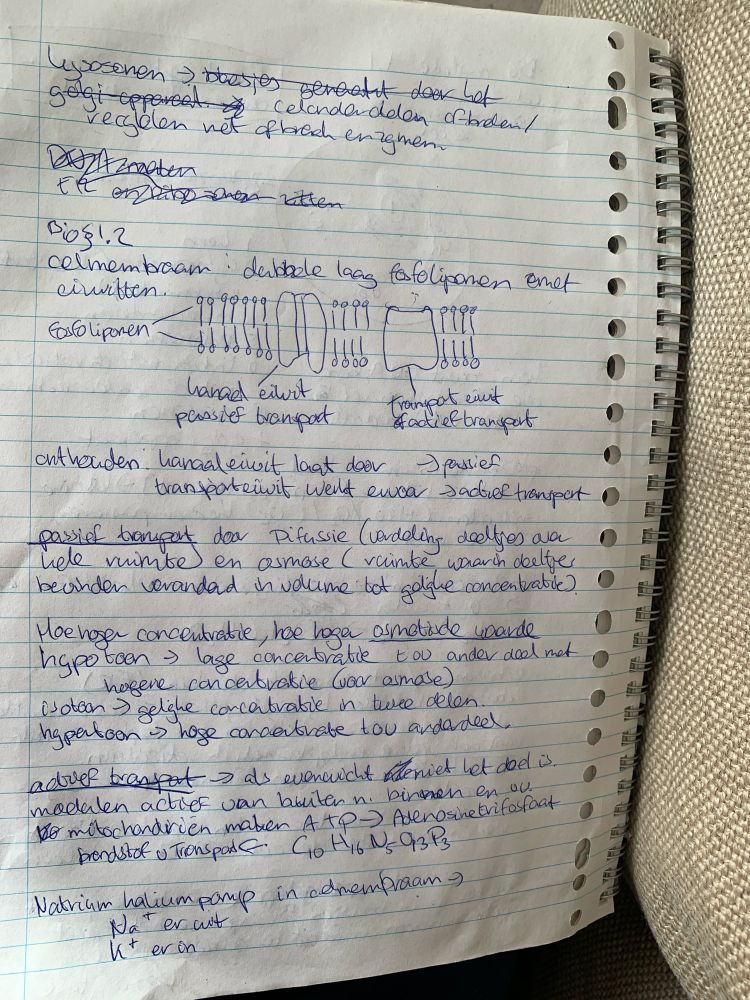 lysosomen → blaasjes gemaakt door het
golgi apparaat. → celonderdelen afbreken/
verglelen met afbreek enzymen.
zitten
Bio §1.2
celmembraam : dubbele laag fosfoliponen emet
eiwitten.
fosfoliponen
kanaal eiwit
passief transport
transport eiwit
actief transport
onthouden: kanaaleiwit laat door → passief
transporteiwit werkt ervoor → actief transport
passief transport door Difussie (verdeling deeltjes over
hele ruimte) en osmose (ruimte waarin deeltjes
bevinden verandad in volume tot gelijke concentratie)
Hoe hoger concentratie, hoe hoger osmotische waarde
hypotoon → lage concentratie tov ander deel met
hogere concentratie (voor osmose)
isotoon → gelijke concentratie in twee delen.
hypertoon → hoge concentratie tov anderdeel.
actief transport → als evenwicht niet het doel is.
van buiten n. binnen en ov.
mitochondriën maken ATP → Adenosinetrifosfaat
brandstof v Transport ← C10 H16 N5 O13 P3
Natrium kaliumpomp in celmembraam →
Na+ er uit
K+ er in